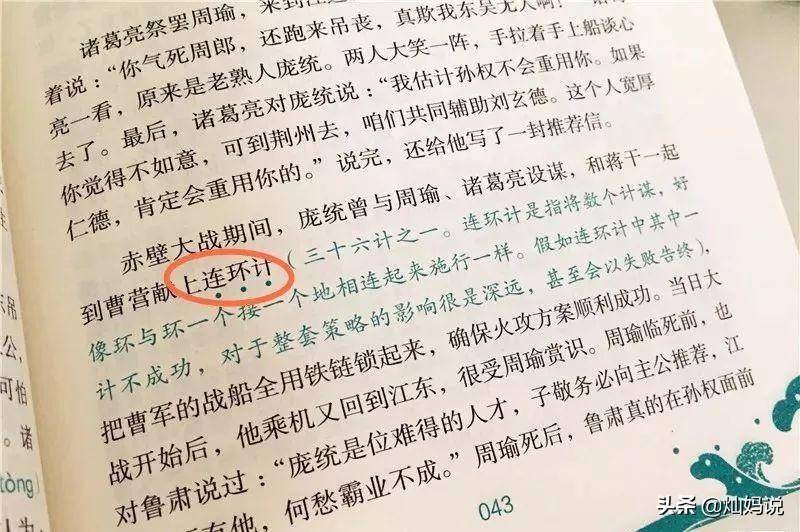 诸葛亮祭罢周瑜，来到江
着说：“你气死周郎，还跑来吊丧，真欺我东吴无人啊！”
亮一看，原来是老熟人庞统。两人大笑一阵，手拉着手上船谈心
去了。最后，诸葛亮对庞统说：“我估计孙权不会重用你。如果
你觉得不如意，可到荆州去，咱们共同辅助刘玄德。这个人宽厚
仁德，肯定会重用你的。”说完，还给他写了一封推荐信。
赤壁大战期间，庞统曾与周瑜、诸葛亮设谋，和蒋干一起
到曹营献上连环计（三十六计之一。连环计是指将数个计谋，好
像环与环一个接一个地相连起来施行一样。假如连环计中其中一
计不成功，对于整套策略的影响很是深远，甚至会以失败告终），
把曹军的战船全用铁链锁起来，确保火攻方案顺利成功。当日大
战开始后，他乘机又回到江东，很受周瑜赏识。周瑜临死前，也
对鲁肃说过：“庞统是位难得的人才，子敬务必向主公推荐，江
有他，何愁霸业不成。”周瑜死后，鲁肃真的在孙权面前
043
东吊
公，
可怕
。诸
tòng）
认为
头条 @灿妈说